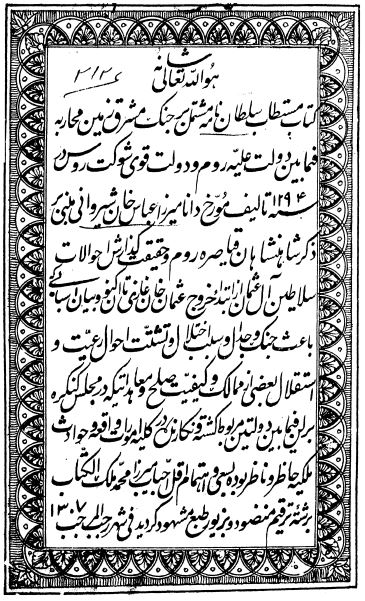 هو الله تعالی شانه
کتاب مستطاب سلطان نامه مشتمل بر جنگ مشرق زمین محاربه
فیمابین دولت علیه روم و دولت قوی شوکت روس در
سنه ۱۲۹۴ تالیف مورخ دانا میرزا عباس خان شیروانی مبنی بر
ذکر شاهنشاهان قیاصره روم و حقیقت گذارش احوالات
سلاطین آل عثمان از ابتداء خروج عثمان خان غازی تا کنون و بیان
باعث جنگ و جدال و سلب اختلال و تشتت احوال رعیت و
استقلال بعضی از ممالک و کیفیت صلح و معاهداتیکه در مجلس کنگره
برلن فیمابین دولتین مربوط گشته و نگارنده در کلیه امورات واقعه و حوادث
ملکیه حاظر و ناظر بوده بسعی و اهتمام اقل حاجب میرزا محمد ملک الکتاب
برشته ترقیم منضود و بزیور طبع مشهود گردید فی شهر رجب المرجب ۱۳۰۷